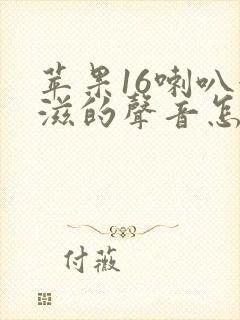 苹果16喇叭
滋的聲音怎
付薇